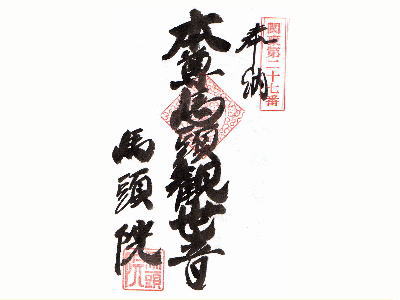 関東第二十七番
奉納
本尊馬頭観世音
馬頭院